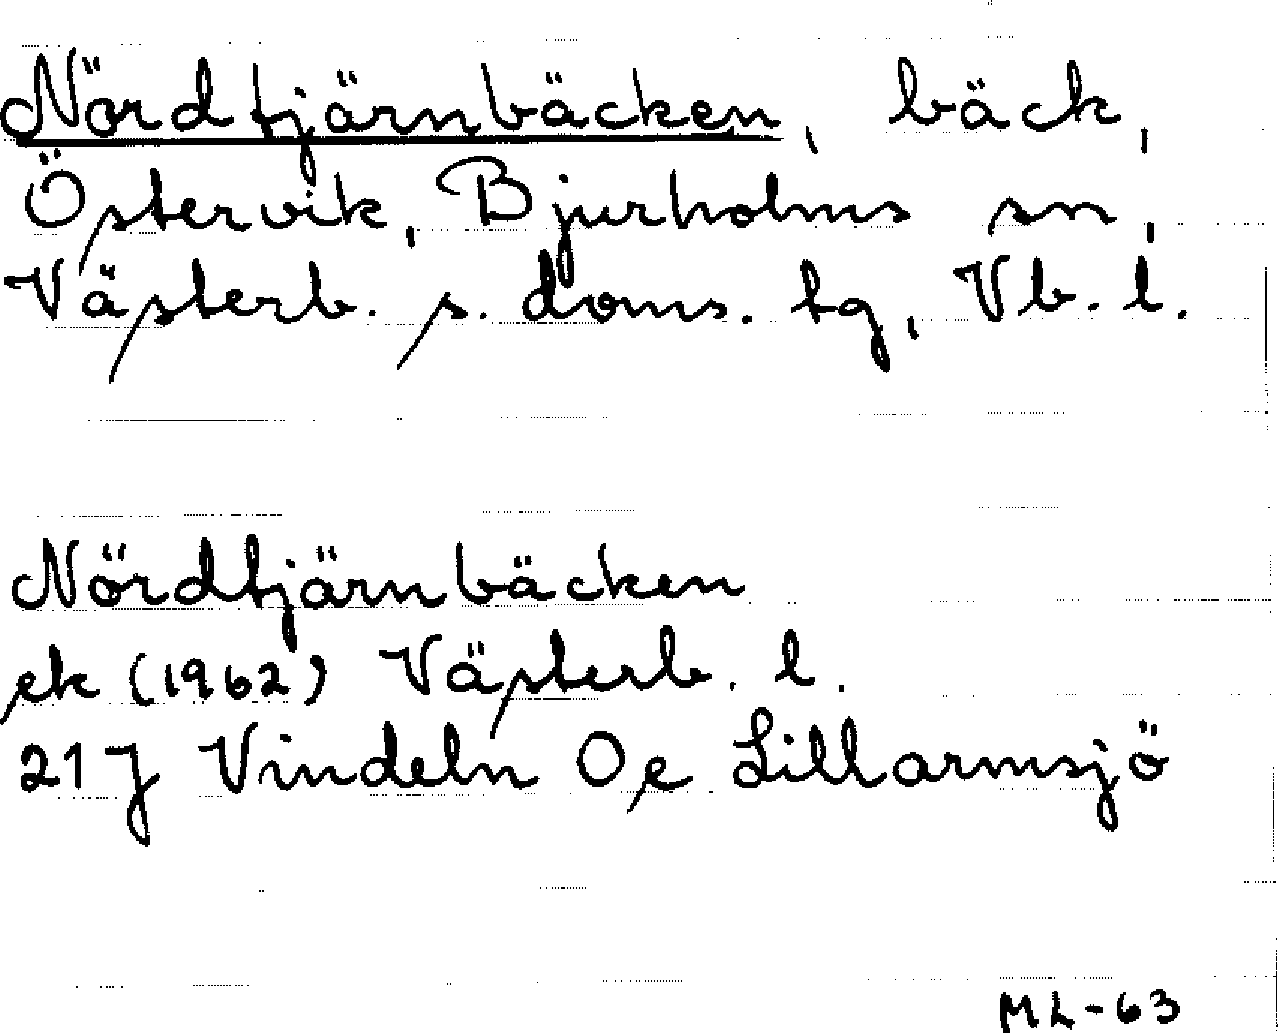 Nördtjärnbäcken, bäck,
Östervik, Bjurholms sn,
Västerb. s. doms. tg, Vb. l.
Nördtjärnbäcken
ek (1962) Västerb. l.
21J Vindeln Oe Lillarmsjö
ML-63